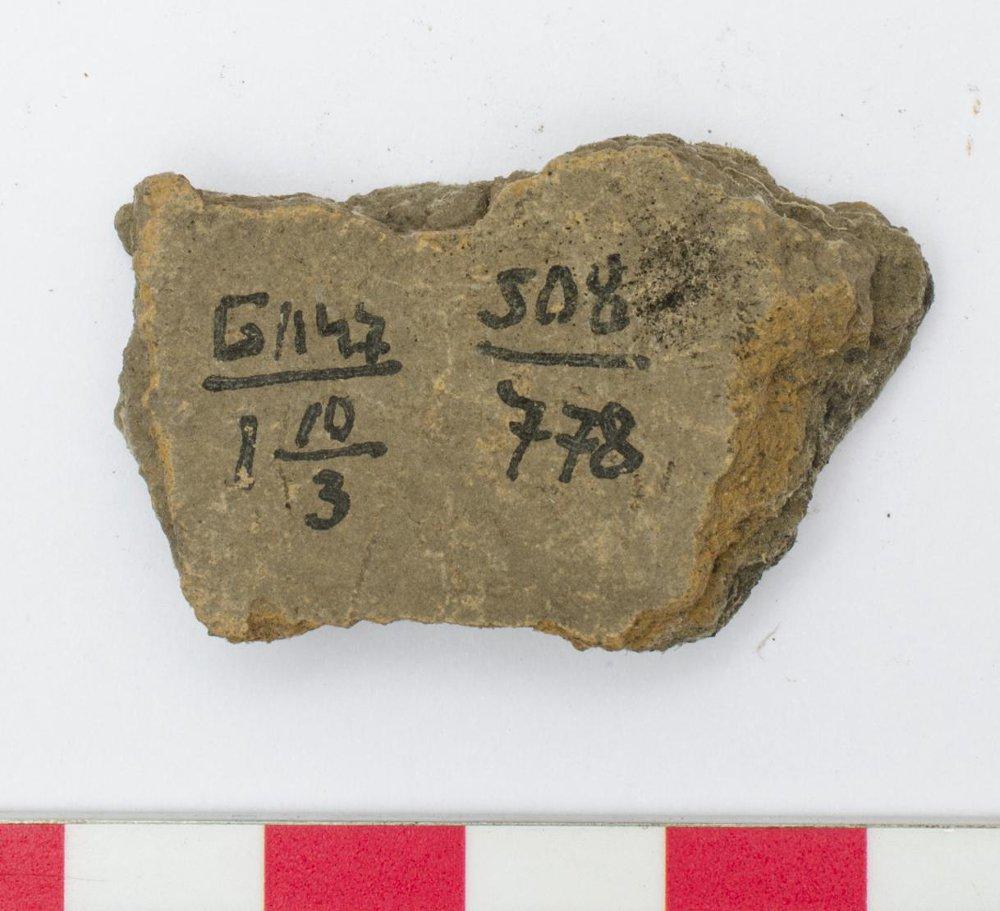 G1147
1 10/3
508
778